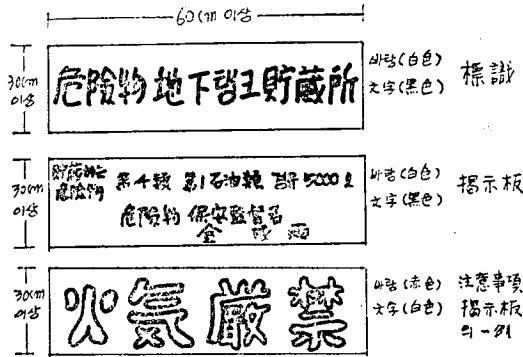 60cm 이상
30cm 이상
危險物 地下탱크 貯蔵所
바탕(白色)
文字(黑色)
標識
30cm 이상
危險物
第4類 第1石油類 5000ℓ
危險物 保安監督者
金
바탕(白色)
文字(黑色)
揭示板
30cm 이상
火気厳禁
바탕(赤色)
文字(白色)
注意事項
揭示板
의 一例